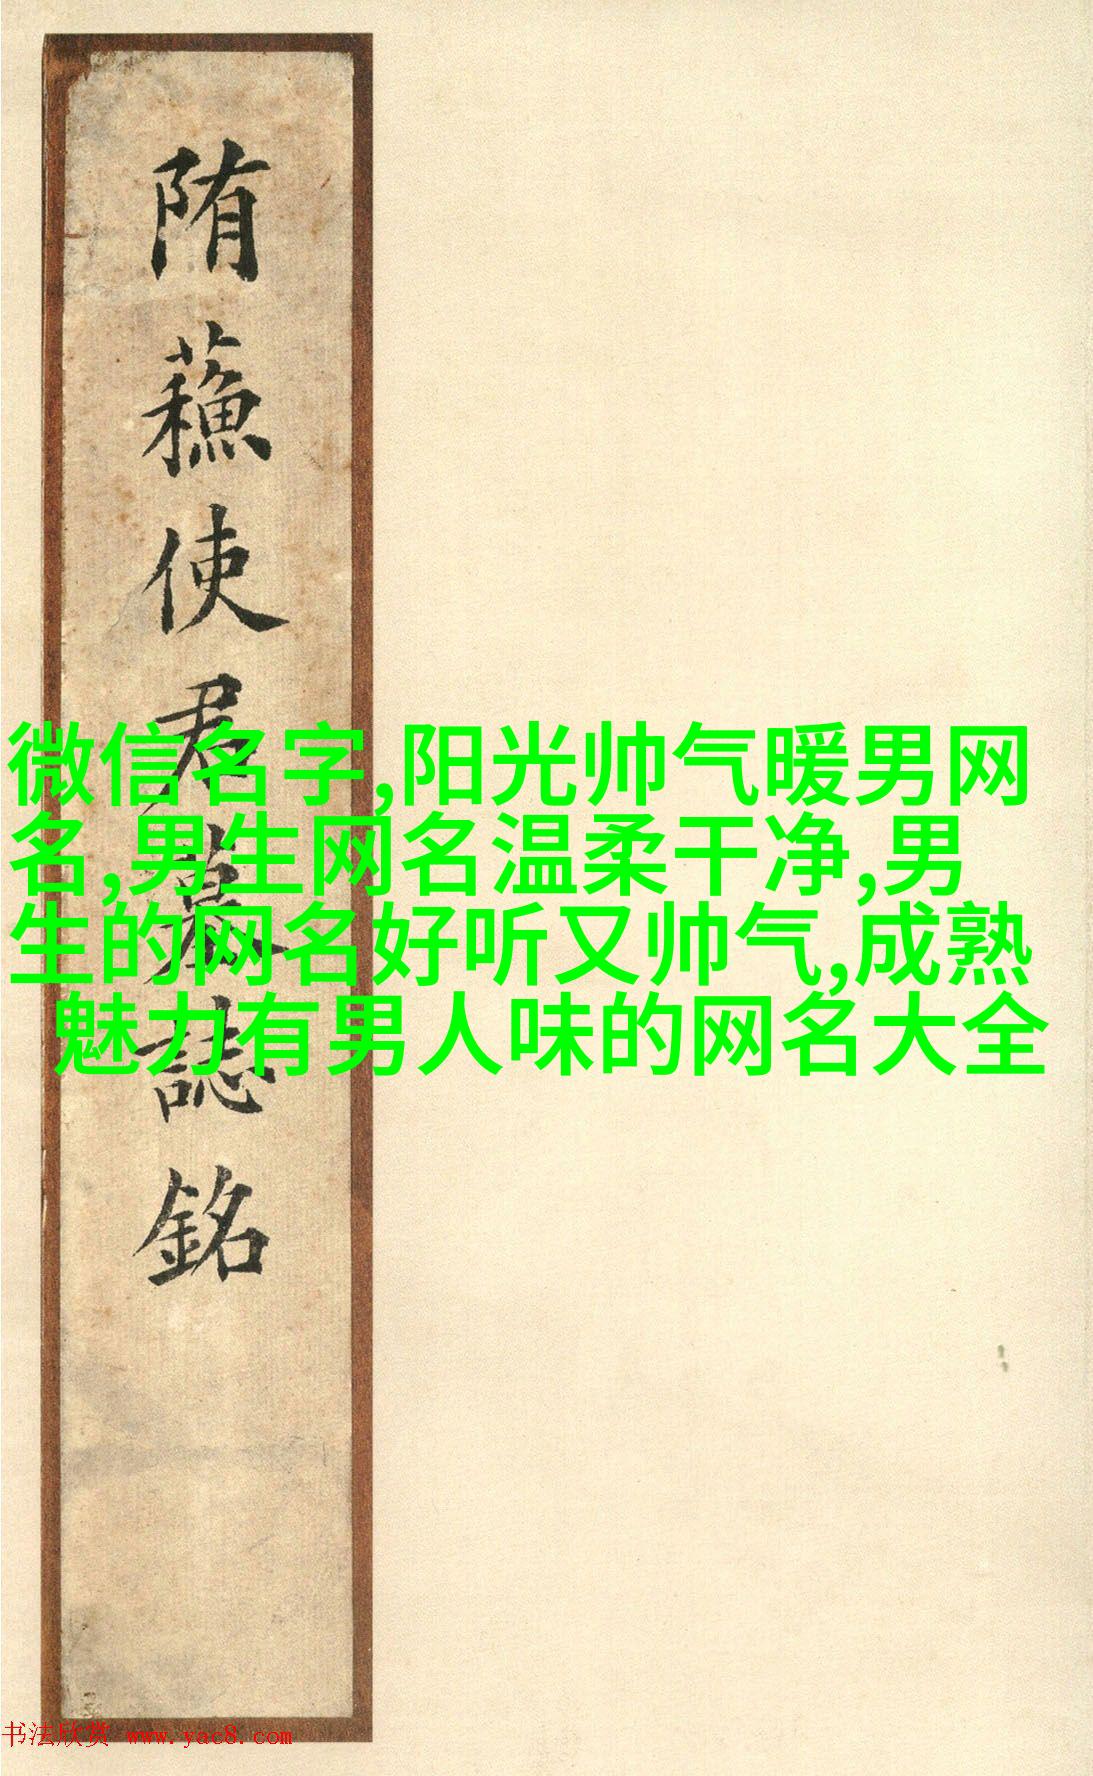 隋蘓使君墓誌銘
微信名字,阳光帅气暖男网
名,男生网名温柔干净,男
生的网名好听又帅气,成熟
魅力有男人味的网名大全
书法欣赏 www.yac8.com